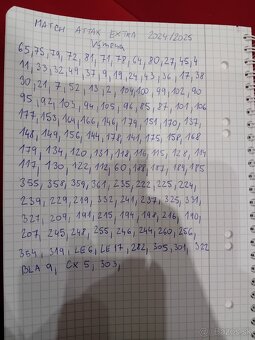 MATCH ATTAX EXTRA 2024/2025
Výmena
65, 75, 79, 72, 81, 71, 78, 64, 80, 27, 45, 4
11, 33, 32, 49, 37, 9, 19, 24, 43, 36, 17, 38
30, 21, 7, 52, 13, 2, 104, 100, 99, 102, 90
95, 92, 103, 94, 105, 96, 85, 87, 101, 106
177, 153, 144, 166, 146, 174, 151, 170, 137,
148, 149, 156, 144, 178, 141, 175, 158, 168
179, 134, 120, 131, 118, 116, 115, 128, 114
117, 130, 122, 112, 60, 188, 187, 189, 185
355, 358, 359, 361, 235, 222, 225, 224,
239, 229, 219, 332, 241, 237, 325, 331,
327, 209, 191, 215, 194, 198, 216, 190,
207, 245, 248, 255, 246, 244, 260, 256,
364, 319, LE6, LE17, 282, 305, 301, 322
BLA 9, CX 5, 303,